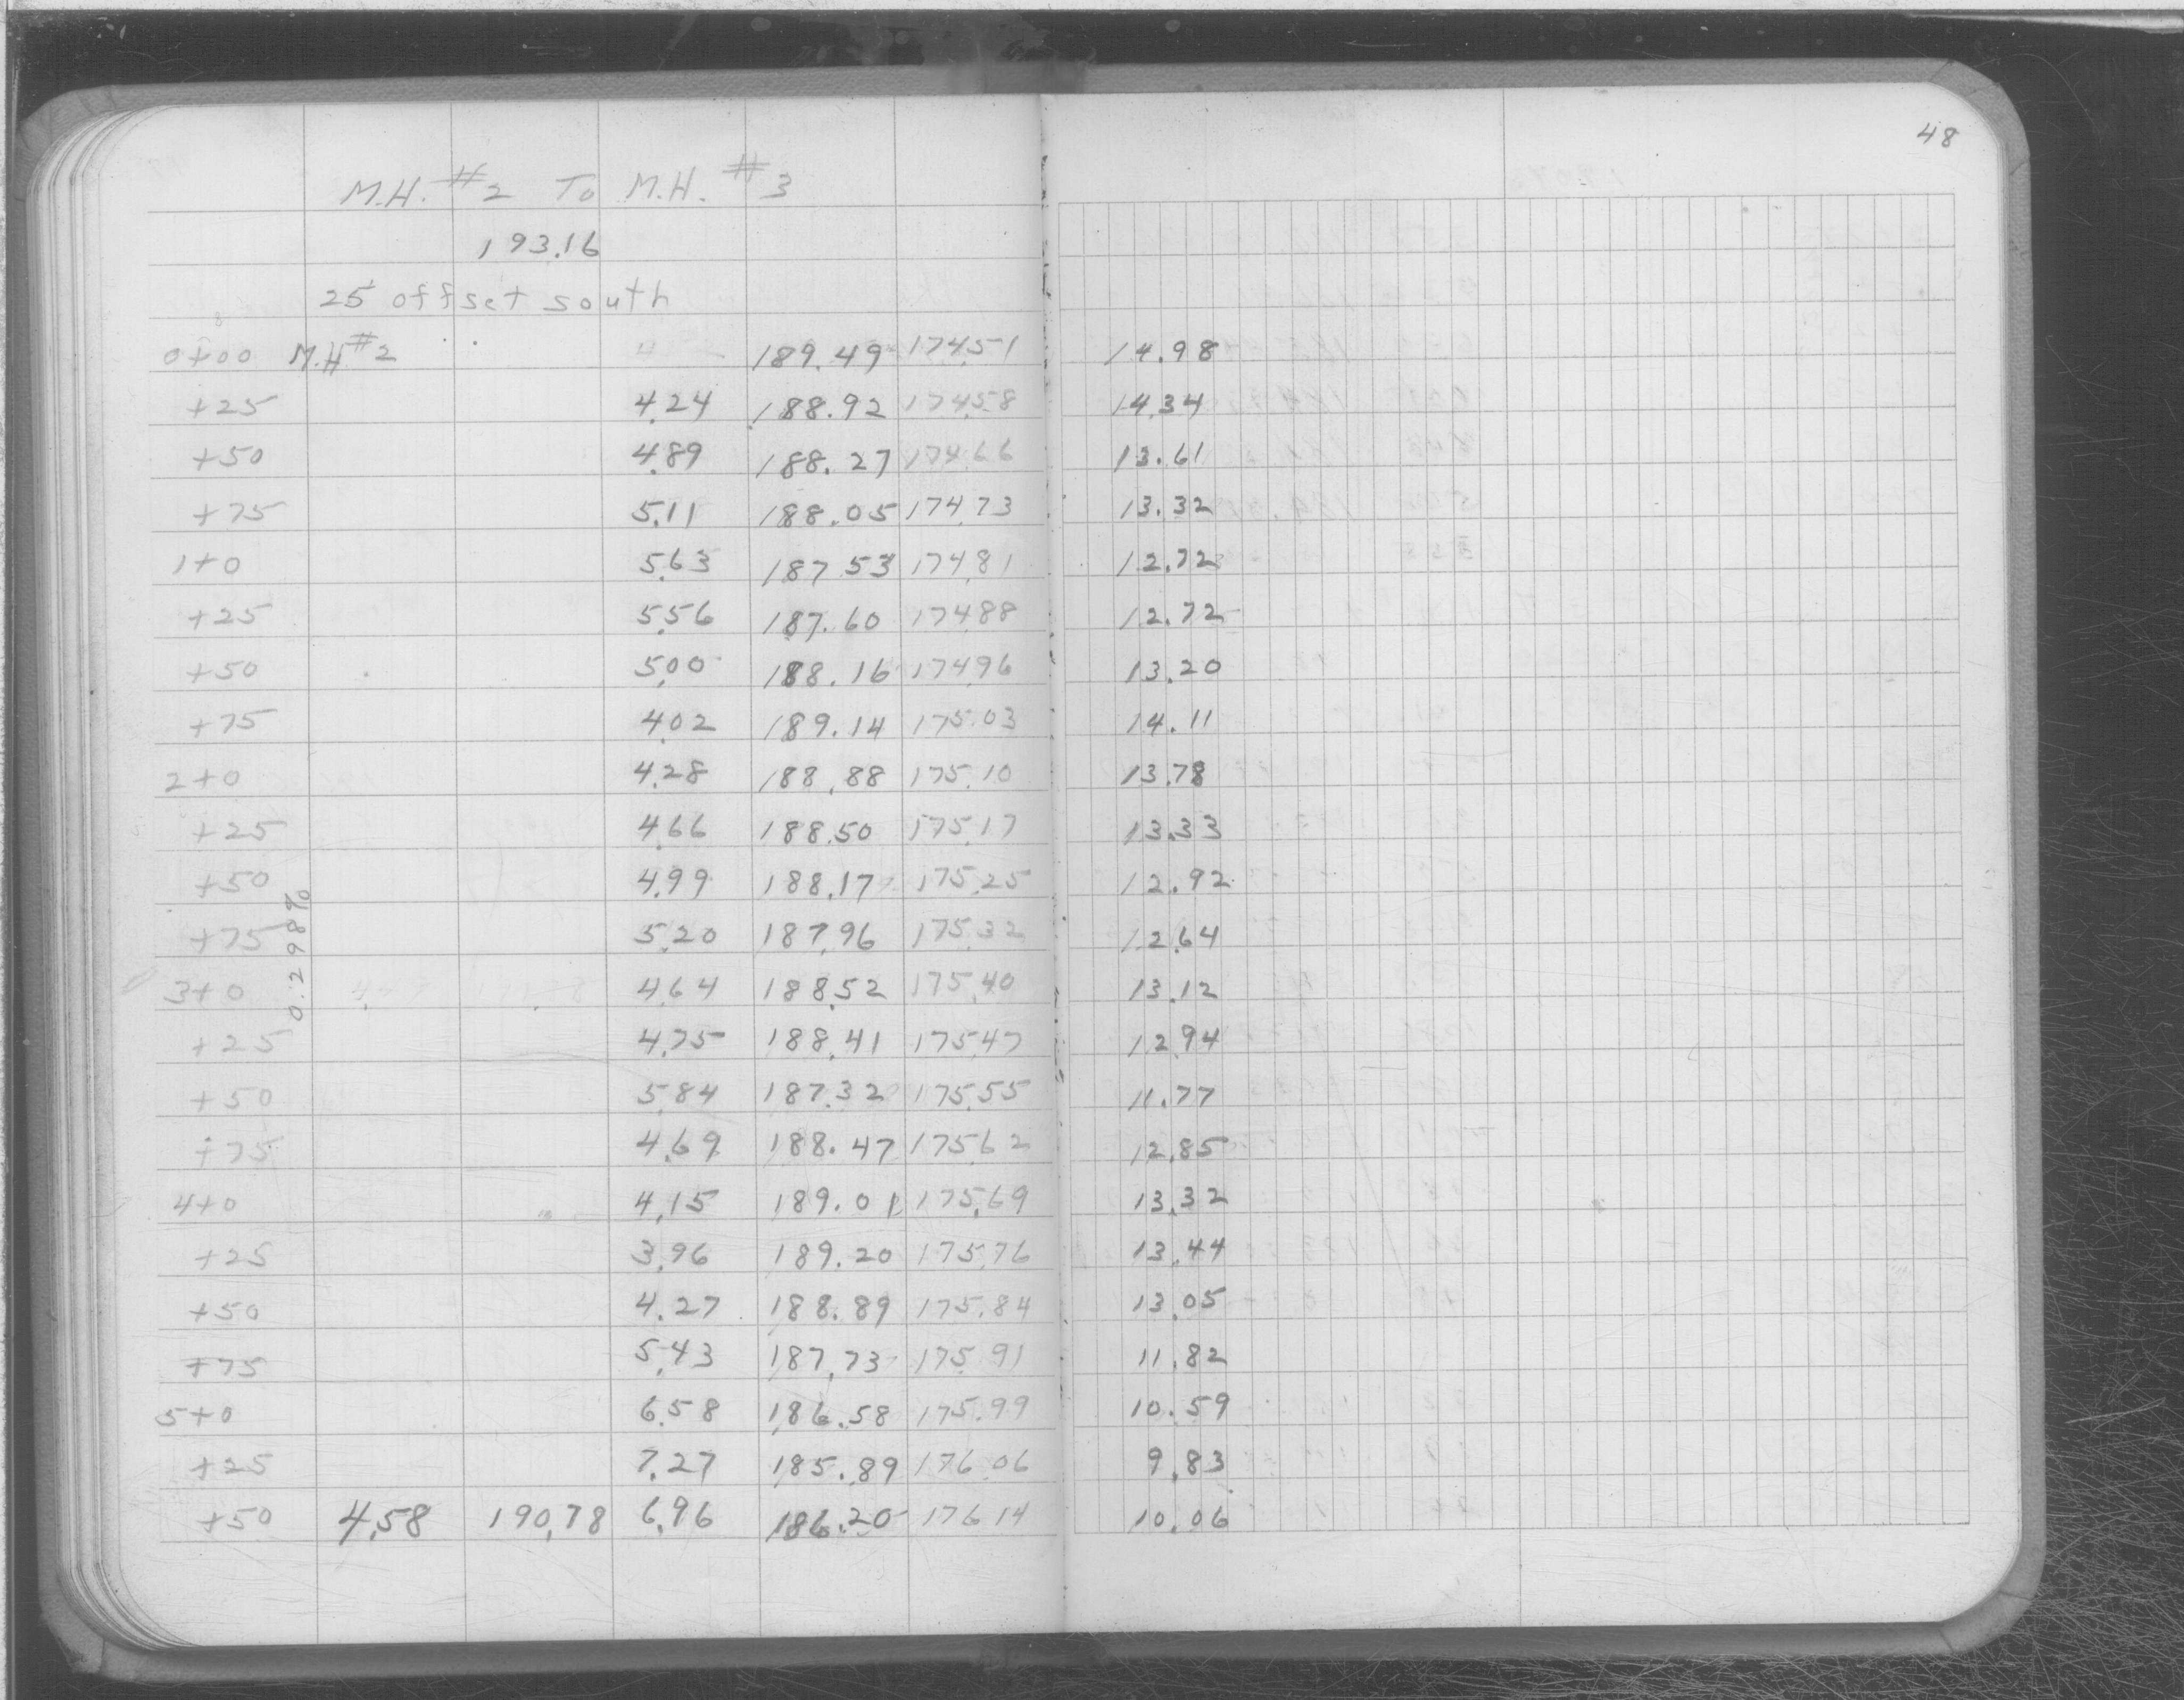 48
M.H. #2 To M.H. #3
193.16
25' offset south
0+00 M.H #2 189.49 174.51 14.98
+25 4.24 188.92 174.58 14.34
+50 4.89 188.27 174.66 13.61
+75 5.11 188.05 174.73 13.32
1+0 5.63 187.53 174.81 12.72
+25 5.56 187.60 174.88 12.72
+50 5.00 188.16 174.96 13.20
+75 4.02 189.14 175.03 14.11
2+0 4.28 188.88 175.10 13.78
+25 4.66 188.50 175.17 13.33
+50 4.99 188.17 175.25 12.92
+75 5.20 187.96 175.32 12.64
0.298%
3+0 4.64 188.52 175.40 13.12
+25 4.75 188.41 175.47 12.94
+50 5.84 187.32 175.55 11.77
+75 4.69 188.47 175.62 12.85
4+0 4.15 189.01 175.69 13.32
+25 3.96 189.20 175.76 13.44
+50 4.27 188.89 175.84 13.05
+75 5.43 187.73 175.91 11.82
5+0 6.58 186.58 175.99 10.59
+25 7.27 185.89 176.06 9.83
+50 4.58 190.78 6.96 186.20 176.14 10.06